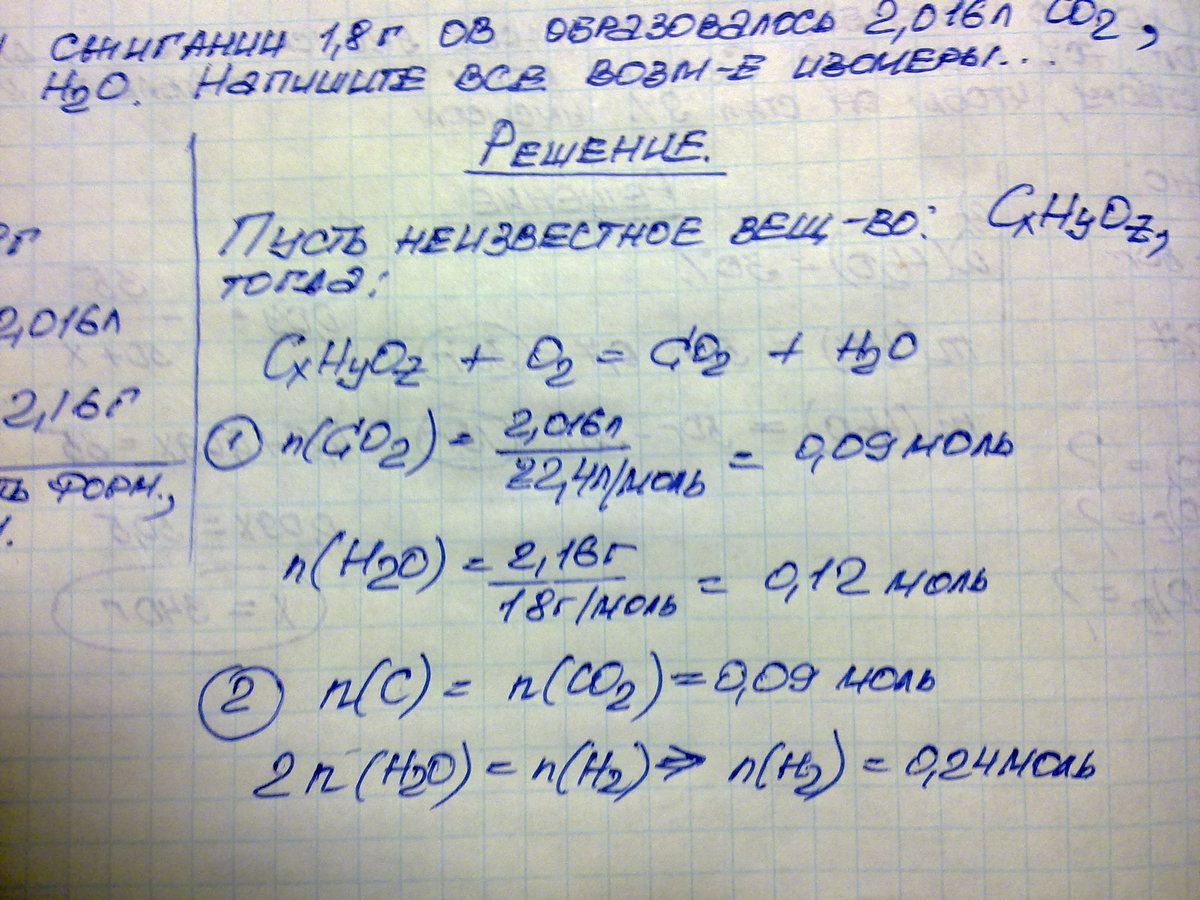 сжигании 1,8г ОВ образовалось 2,016л CO2,
H2O. Напишите все возм-е изомеры...
Решение.
Пусть неизвестное вещ-во: CxHyOz,
тогда:
2,016л
2,16г
ть форм.,
CxHyOz + O2 = CO2 + H2O
① n(CO2) = 2,016л / 22,4л/моль = 0,09 моль
n(H2O) = 2,16г / 18г/моль = 0,12 моль
② n(C) = n(CO2) = 0,09 моль
2n(H2O) = n(H2) => n(H2) = 0,24 моль